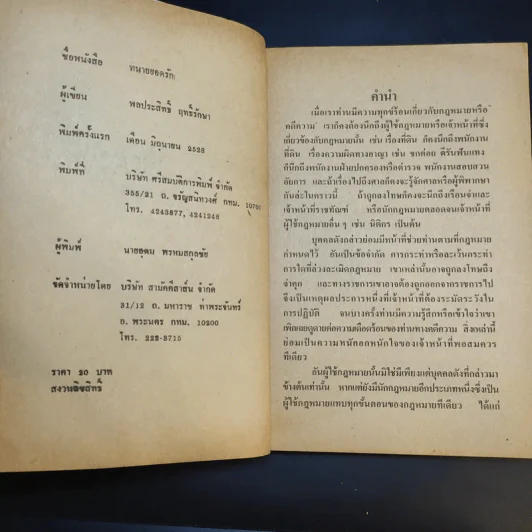 ชื่อหนังสือ ทนายยอดรัก
ผู้เขียน พลประสิทธิ์ ฤทธิ์รักษา
พิมพ์ครั้งแรก เดือน มิถุนายน 2528
พิมพ์ที่ บริษัท ศรีสมบัติการพิมพ์ จำกัด
355/21 ถ. จรัญสนิทวงศ์ กทม. 10700
โทร. 4243877, 4241248
ผู้พิมพ์ นายอุดม พรหมสกุลชัย
จัดจำหน่ายโดย บริษัท สามัคคีสาส์น จำกัด
31/12 ถ. มหาราช ท่าพระจันทร์
อ. พระนคร กทม. 10200
โทร. 223-3715
ราคา 20 บาท
สงวนลิขสิทธิ์
คำนำ
เมื่อเราท่านมีความทุกข์ร้อนเกี่ยวกับกฎหมายหรือ
"คดีความ" เราก็คงต้องนึกถึงผู้ใช้กฎหมายหรือเจ้าหน้าที่ซึ่ง
เกี่ยวข้องกับกฎหมายนั้น เช่น เรื่องที่ดิน ก็คงนึกถึงพนักงาน
ที่ดิน เรื่องความผิดทางอาญา เช่น ชกต่อย ตีรันฟันแทง
ก็นึกถึงพนักงานฝ่ายปกครองหรือตำรวจ พนักงานสอบสวน
อัยการ และถ้าเรื่องไปถึงศาลก็คงจะรู้จักศาลหรือผู้พิพากษา
กันล่ะในคราวนี้ ถ้าถูกลงโทษก็คงจะนึกถึงเรือนจำและ
เจ้าหน้าที่ราชทัณฑ์ หรือนักกฎหมายตลอดจนเจ้าหน้าที่
ผู้ใช้กฎหมายอื่น ๆ เช่น นิติกร เป็นต้น
บุคคลดังกล่าวย่อมมีหน้าที่ช่วยท่านตามที่กฎหมาย
กำหนดไว้ อันเป็นข้อจำกัด การกระทำหรือละเว้นกระทำ
การใดที่ล่วงละเมิดกฎหมาย เขาเหล่านั้นอาจถูกลงโทษถึง
จำคุก และทางราชการเขาอาจต้องถูกออกจากราชการไป
จึงเป็นเหตุผลประการหนึ่งที่เจ้าหน้าที่ต้องระมัดระวังใน
การปฏิบัติ จนบางครั้งท่านมีความรู้สึกหรือเข้าใจว่าเขา
เพิกเฉยดูดายต่อความเดือดร้อนของท่านทางคดีความ สิ่งเหล่านี้
ย่อมเป็นความหนักอกหนักใจของเจ้าหน้าที่พอสมควร
ทีเดียว
อันผู้ใช้กฎหมายนั้นมิใช่มีเพียงแต่บุคคลดังที่กล่าวมา
ข้างต้นเท่านั้น หากแต่ยังมีนักกฎหมายอีกประเภทหนึ่งซึ่งเป็น
ผู้ใช้กฎหมายแทบทุกขั้นตอนของกฎหมายทีเดียว ได้แก่